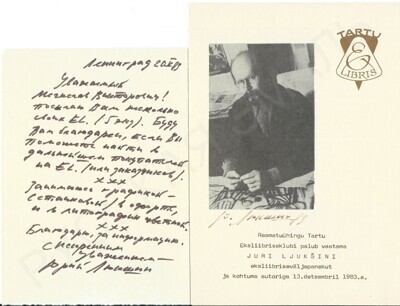 Ленинград
Уважаемый
Мечислав Викторович!
посылаю Вам несколько
своих EL. (5 экз). Буду
Вам благодарен, если Вы
поможете найти в
дальнейшем покупателей
на EL. (или заказчиков).
ххх
Занимаюсь графикой-
и в литографии цветной.
ххх
Благодарю за информацию.
С искренним
уважением-
Юрий Люкшин
TARTU
EX
LIBRIS
Ю. Люкшин
Raamatuühingu Tartu
Eksliibriseklubi palub vaatama
JURI LJUKŠINI
eksliibrisevaljapanekut
ja kohtuma autoriga 13.detsembril 1983.a.